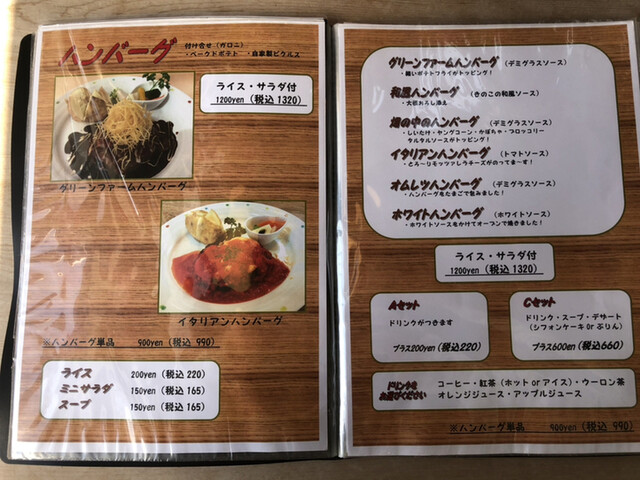 ハンバーグ
付け合せ(ガロニ)
・ベークドポテト ・自家製ピクルス
ライス・サラダ付
1200yen(税込1320)
グリーンファームハンバーグ
イタリアンハンバーグ
※ハンバーグ単品 900yen(税込 990)
ライス 200yen(税込 220)
ミニサラダ 150yen(税込 165)
スープ 150yen(税込 165)
グリーンファームハンバーグ (デミグラスソース)
・細いポテトフライがトッピング!
和風ハンバーグ (きのこの和風ソース)
・大根おろし添え
畑の中のハンバーグ (デミグラスソース)
・しいたけ・ヤングコーン・かぼちゃ・ブロッコリー
タルタルソースがトッピング!
イタリアンハンバーグ (トマトソース)
・とろ~りモッツァレラチーズがのってま~す!
オムレツハンバーグ (デミグラスソース)
・ハンバーグをたまごで包みました!
ホワイトハンバーグ (ホワイトソース)
・ホワイトソースをかけてオーブンで焼きました!
ライス・サラダ付
1200yen(税込1320)
Aセット
ドリンクがつきます
プラス200yen(税込220)
Cセット
ドリンク・スープ・デザート
(シフォンケーキorぷりん)
プラス600yen(税込660)
ドリンクを
お選びください
コーヒー・紅茶(ホットorアイス)・ウーロン茶
オレンジジュース・アップルジュース
※ハンバーグ単品 900yen(税込 990)